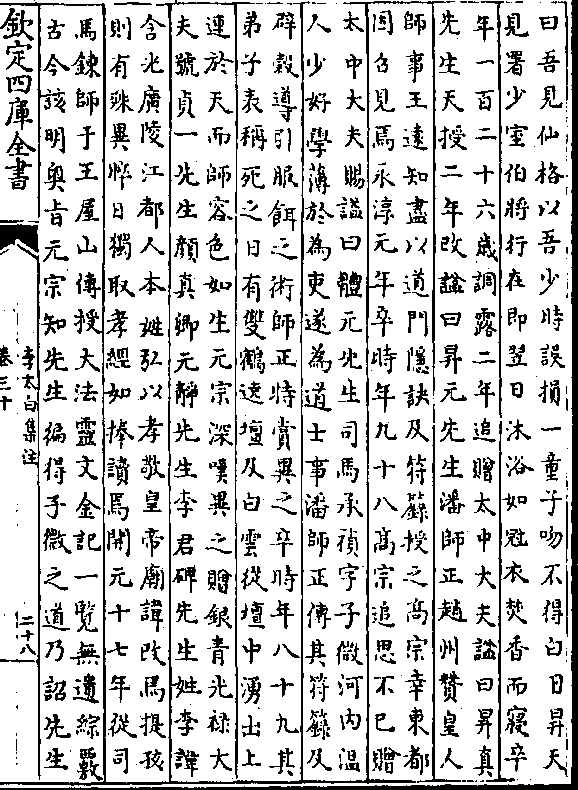 曰吾見仙格以吾少時誤損一童子吻不得白日昇天
見署少室伯將行在即翌日沐浴如冠衣焚香而寢卒
年一百二十六歲調露二年追贈太中大夫諡曰昇真
先生天授二年改諡曰昇元先生潘師正趙州贊皇人
師事王遠知盡以道門隱訣及符籙授之高宗幸東都
因召見焉永淳元年卒時年九十八高宗追思不已贈
太中大夫賜諡曰體元先生司馬承禎字子微河内温
人少好學薄於為吏遂為道士事潘師正傳其符籙及
辟穀導引服餌之術師正特賞異之卒時年八十九其
弟子表稱死之日有雙鶴遶壇及白雲從壇中湧出上
連於天而師容色如生元宗深嘆異之贈銀青光禄大
夫號貞一先生顔真卿元靜先生李君碑先生姓李諱
含光廣陵江都人本姓弘以孝敬皇帝廟諱改焉提孩
則有殊異晬日獨取孝經如捧讀焉開元十七年從司
馬鍊師于王屋山傳授大法靈文金記一覽無遺綜覈
古今該明奥㫖元宗知先生編得子微之道乃詔先生
欽定四庫全書
李太白集注
卷三十
二十八